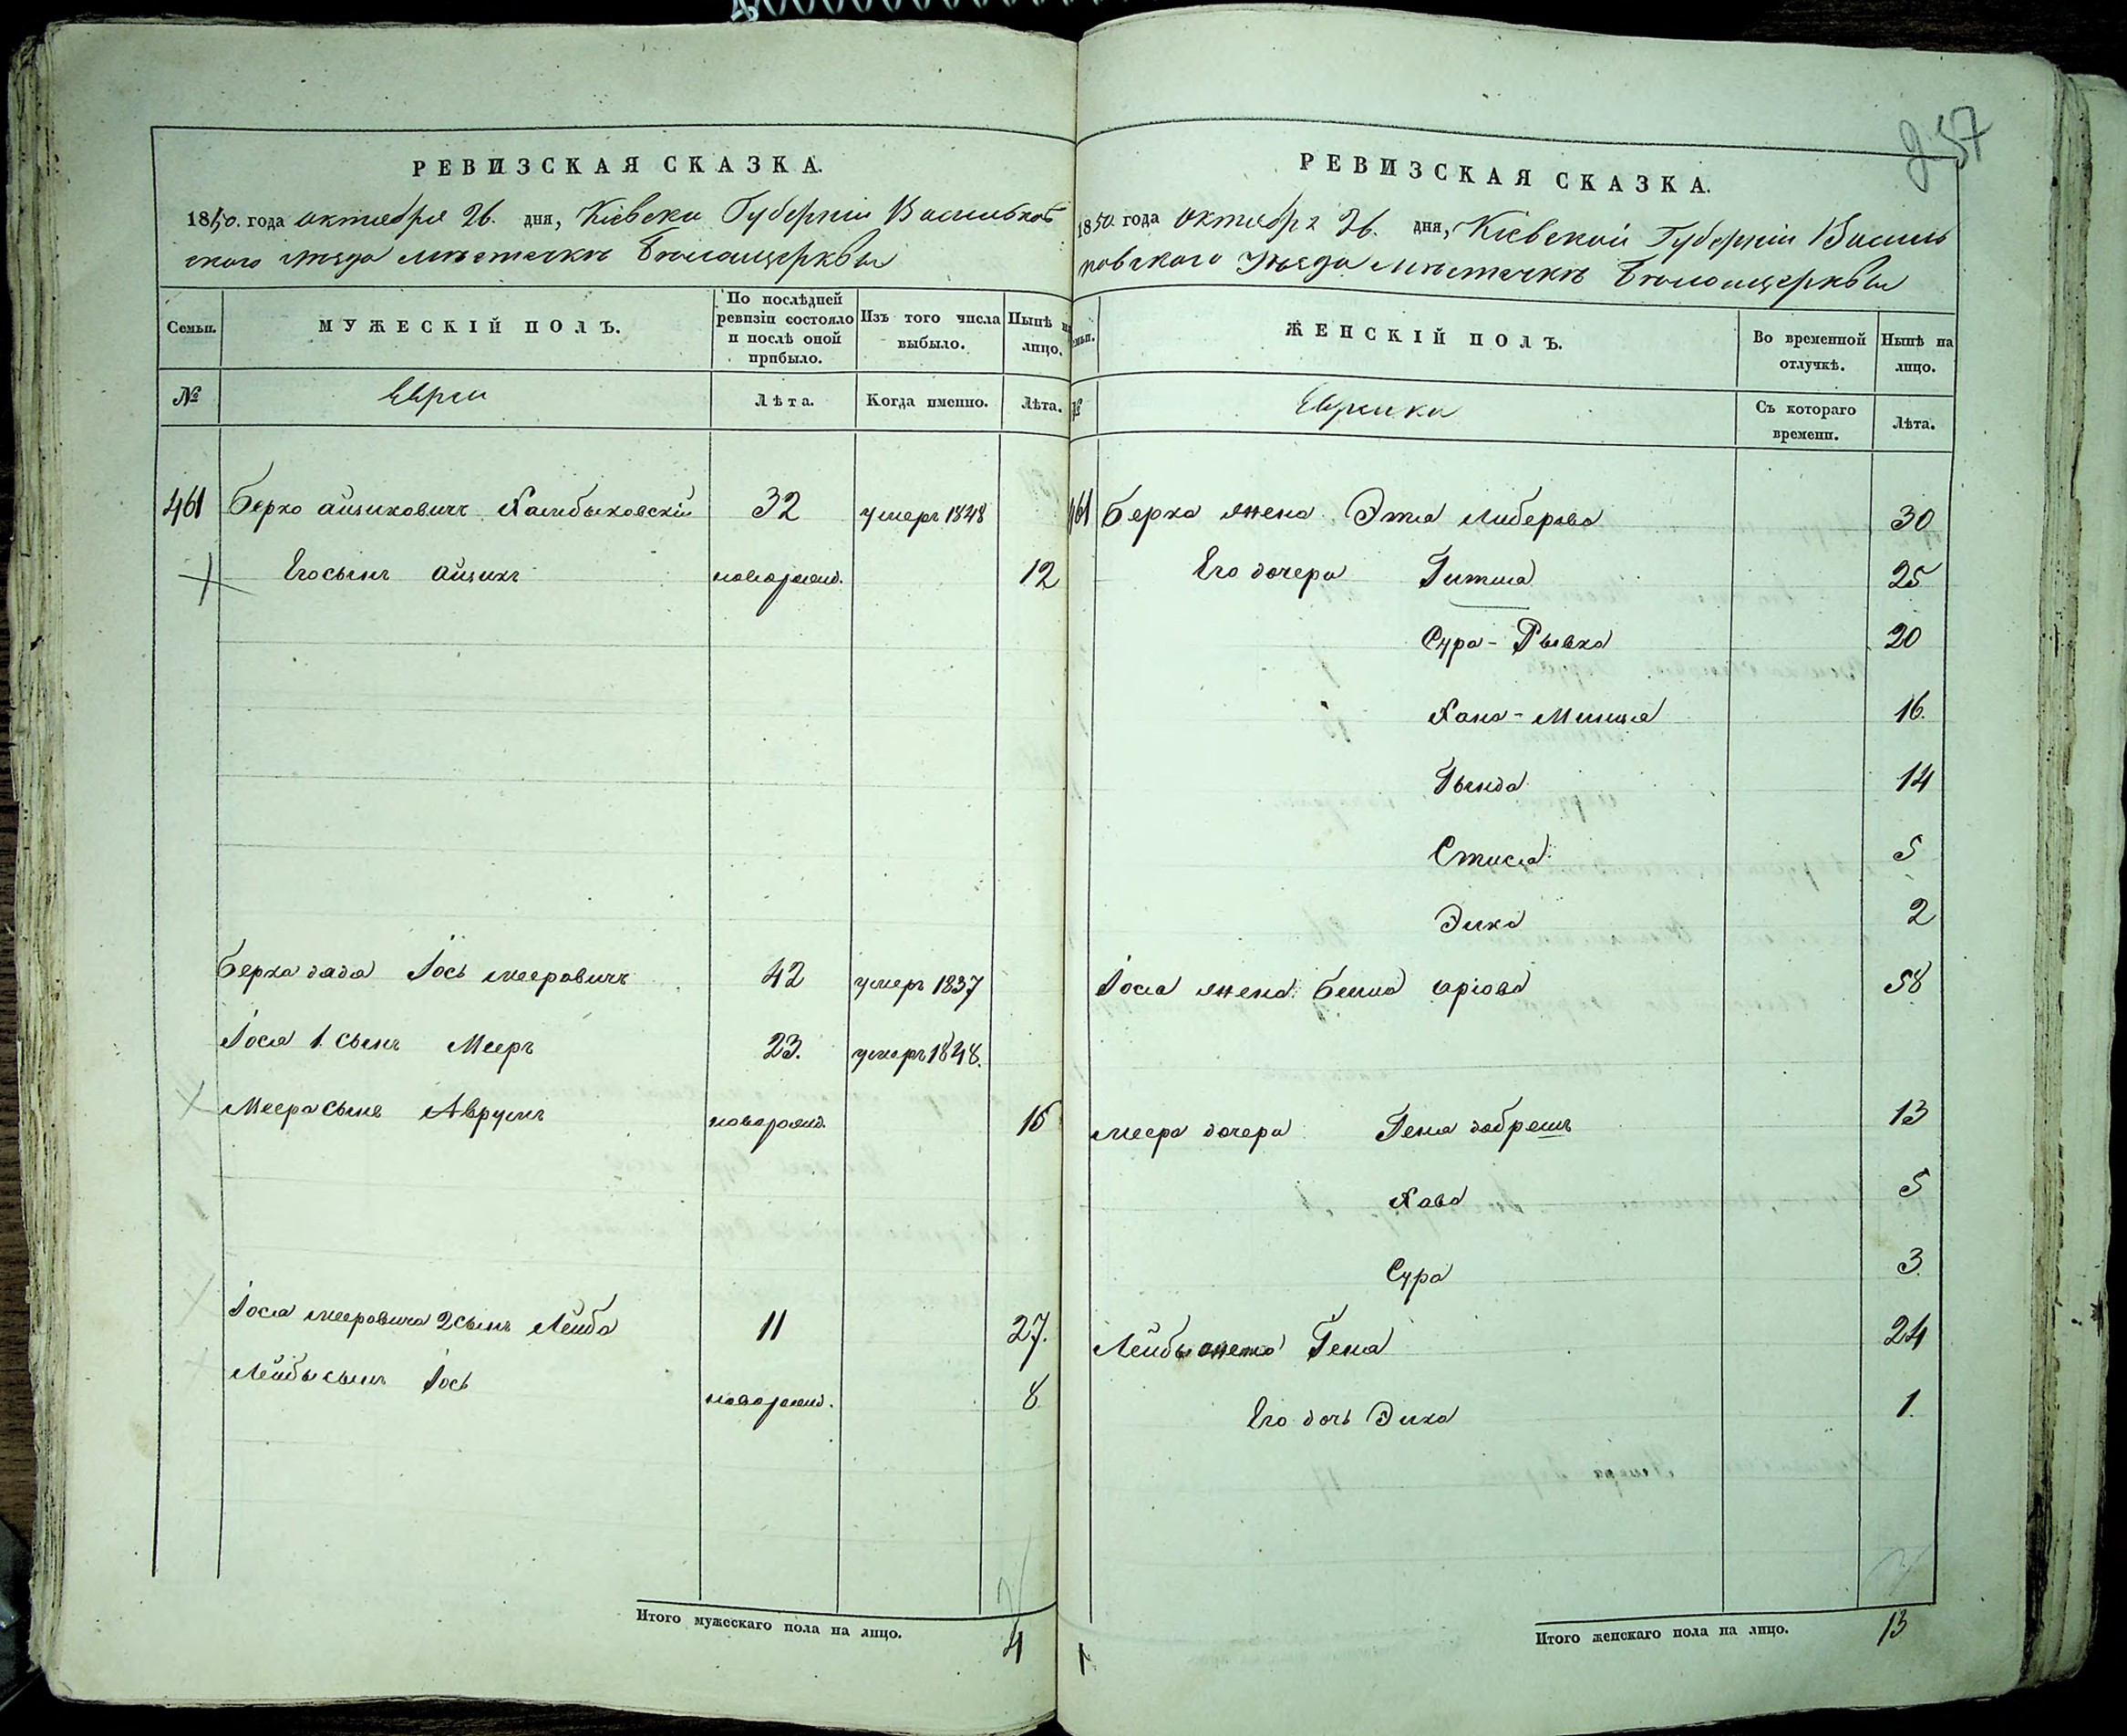 РЕВИЗСКАЯ СКАЗКА.
1850. года октября 26. дня, Кіевской Губерніи Васильков
скаго уезда местечкѣ Белойцеркви
Семьи.
МУЖЕСКІЙ ПОЛЪ.
По послѣдней ревизіи состояло и послѣ оной прибыло.
Изъ того числа выбыло.
Нынѣ на лицо.
№
Евреи
Лѣта.
Когда именно.
Лѣта.
461 Берко Айзиковичъ 32 умеръ 1848
Его сынъ Айзикъ новорожд. 12
Берка дядя Іось Мееровичъ 42 умеръ 1837
Іося 1. сынъ Мееръ 23. умеръ 1848.
Меера сынъ Аврумъ новорожд. 16
Іося Мееровича 2 сынъ Лейба 11 27.
Лейбы сынъ Іось новорожд. 8
Итого мужескаго пола на лицо. 4
257
РЕВИЗСКАЯ СКАЗКА.
1850. года октября 26. дня, Кіевской Губерніи Василь
ковскаго уезда местечкѣ Белойцеркви
Семьи.
ЖЕНСКІЙ ПОЛЪ.
Во временной отлучкѣ.
Нынѣ на лицо.
№
Еврейки
Съ котораго времени.
Лѣта.
461 Берка жена Этя Либерова 30
Его дочери Гитля 25
Сура-Рывка 20
Хана-Минця 16.
Гында 14
Стися 5
Эйка 2
Іося жена 58
Меера дочери Геня Добрешъ 13
Хава 5
Сура 3.
Лейбы жена Геня 24
Его дочь Эйка 1.
1
Итого женскаго пола на лицо. 13